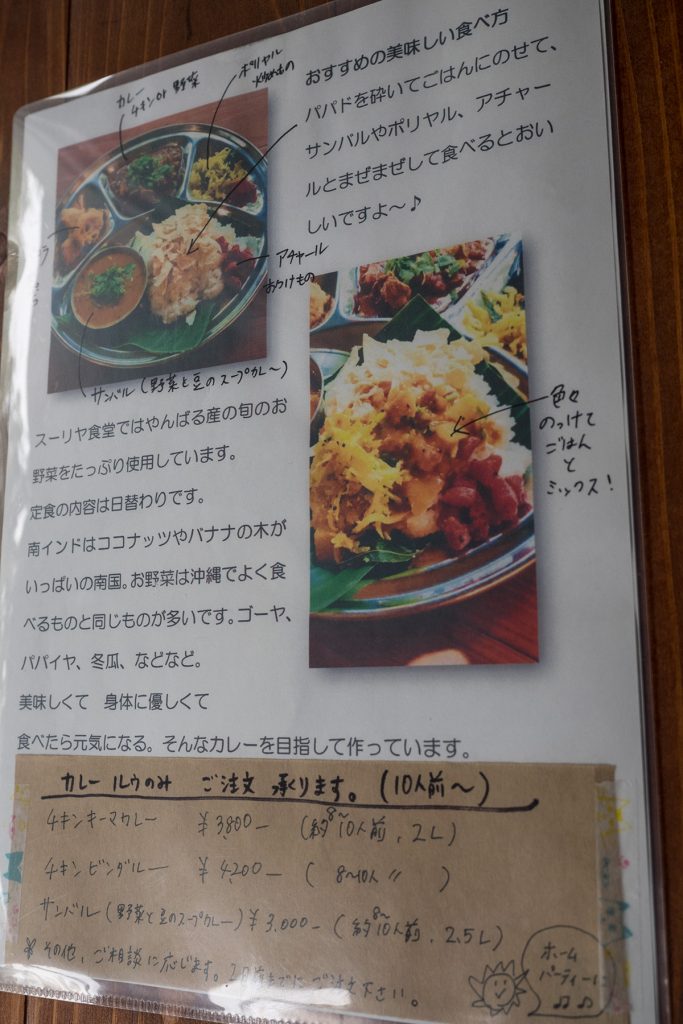 カレー
チキンor 野菜
ポリヤル
炒めもの
おすすめの美味しい食べ方
パパドを砕いてごはんにのせて、
サンバルやポリヤル、アチャー
ルとまぜまぜして食べるとおい
しいですよ～♪
アチャール
おつけもの
サンバル（野菜と豆のスープカレー）
色々
のっけて
ごはん
と
ミックス！
スーリヤ食堂ではやんばる産の旬のお
野菜をたっぷり使用しています。
定食の内容は日替わりです。
南インドはココナッツやバナナの木が
いっぱいの南国。お野菜は沖縄でよく食
べるものと同じものが多いです。ゴーヤ、
パパイヤ、冬瓜、などなど。
美味しくて　身体に優しくて
食べたら元気になる。そんなカレーを目指して作っています。
カレールウのみ　ご注文 承ります。（10人前～）
チキンキーマカレー　¥3,800－　（約8～10人前、2L）
チキンビンダルー　¥4,200－　（8～10人 〃　）
サンバル（野菜と豆のスープカレー）¥3,000－（約8～10人前、2.5L）
※その他、ご相談に応じます。2日前までにご注文下さい。
ホーム
パーティーに
♫♪